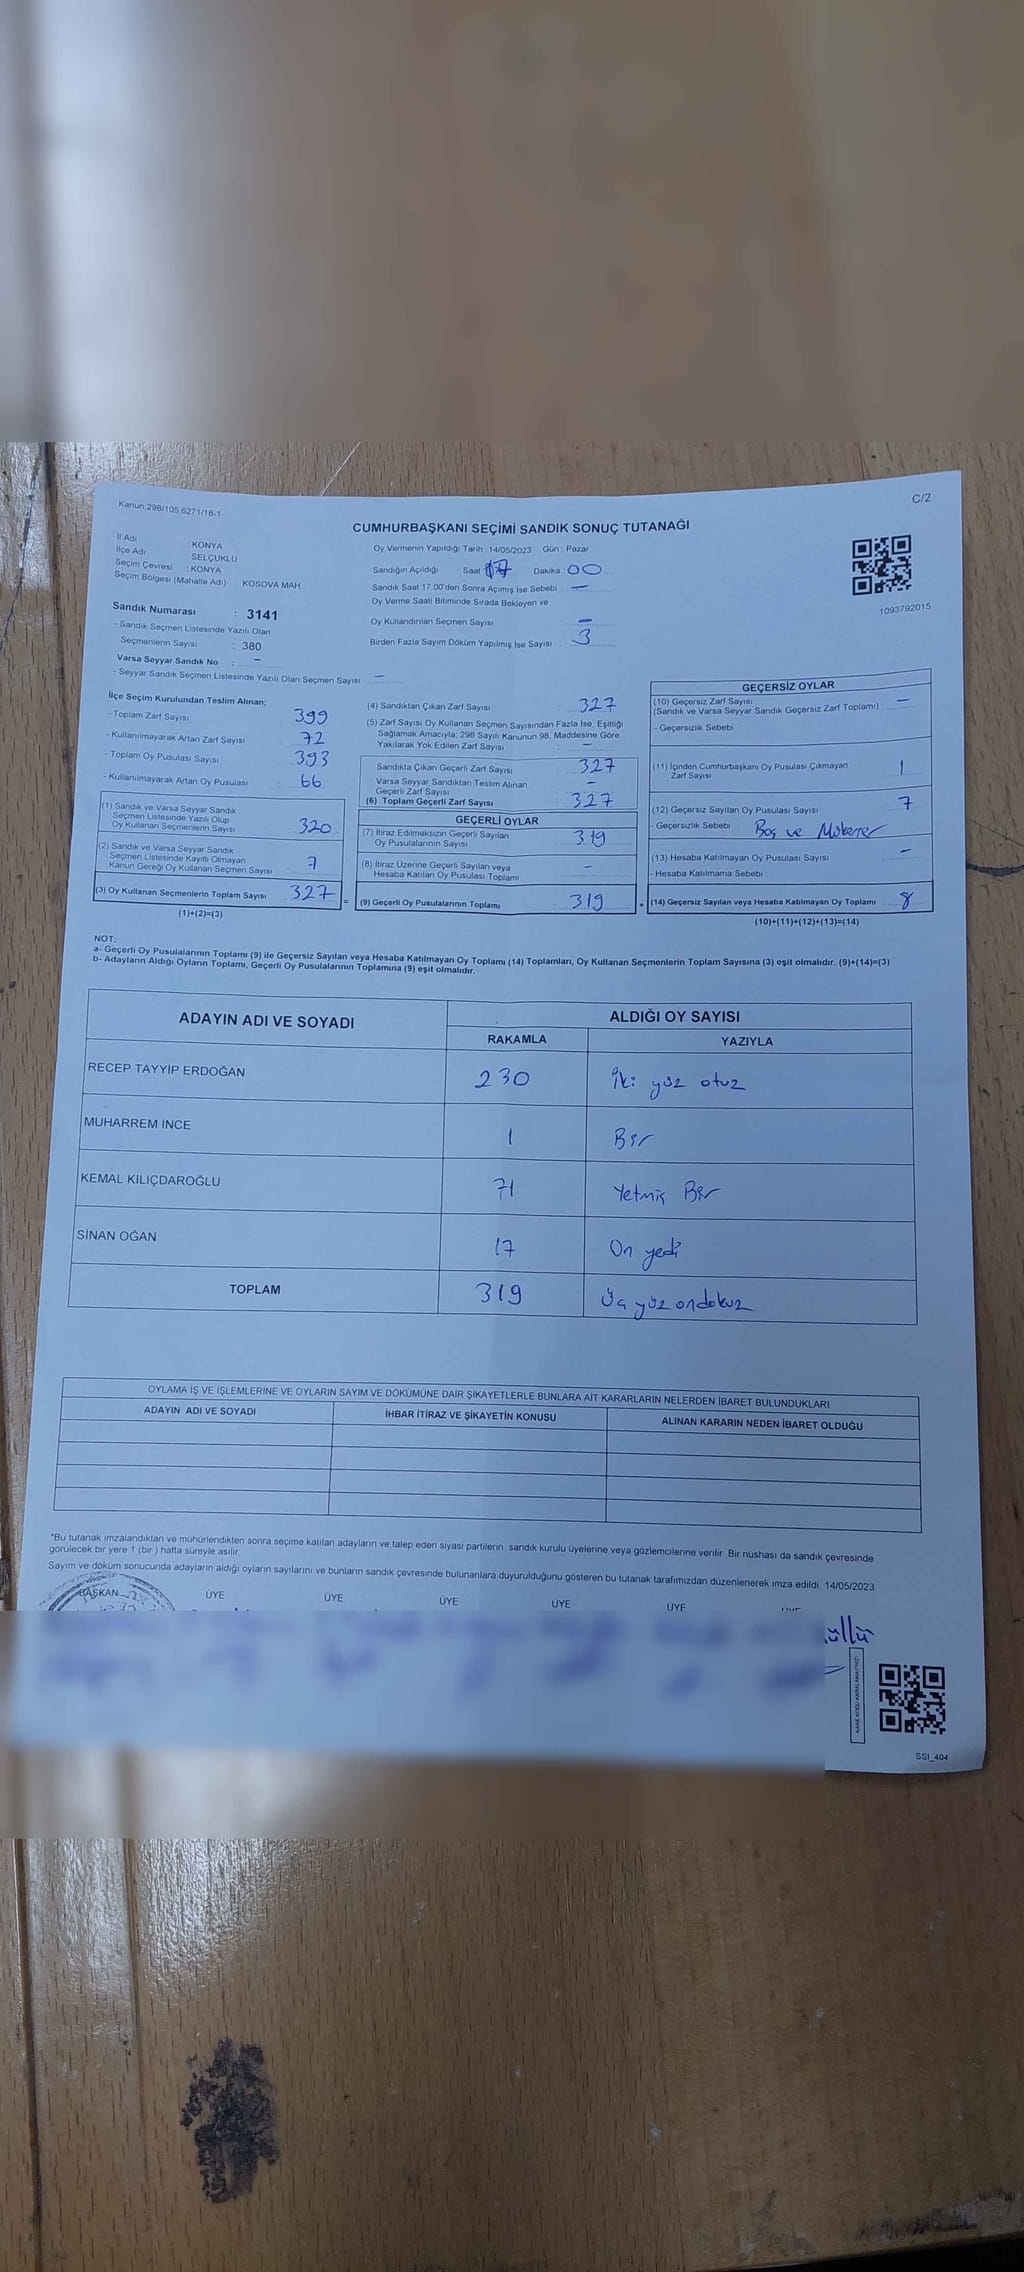 Kanun:298/105,6271/18-1
C/2
CUMHURBAŞKANI SEÇİMİ SANDIK SONUÇ TUTANAĞI
İl Adı : KONYA
İlçe Adı : SELÇUKLU
Seçim Çevresi : KONYA
Seçim Bölgesi (Mahalle Adı) KOSOVA MAH.
Oy Vermenin Yapıldığı Tarih : 14/05/2023 Gün : Pazar
Sandığın Açıldığı Saat : 17 Dakika : 00
Sandık Saat 17:00'den Sonra Açılmış İse Sebebi : -
Oy Verme Saati Bitiminde Sırada Bekleyen ve
Oy Kullandırılan Seçmen Sayısı -
Birden Fazla Sayım Döküm Yapılmış İse Sayısı : 3
1093792015
Sandık Numarası : 3141
- Sandık Seçmen Listesinde Yazılı Olan
Seçmenlerin Sayısı : 380
Varsa Seyyar Sandık No : -
- Seyyar Sandık Seçmen Listesinde Yazılı Olan Seçmen Sayısı -
İlçe Seçim Kurulundan Teslim Alınan;
- Toplam Zarf Sayısı 399
- Kullanılmayarak Artan Zarf Sayısı 72
- Toplam Oy Pusulası Sayısı 393
- Kullanılmayarak Artan Oy Pusulası 66
(1) Sandık ve Varsa Seyyar Sandık
Seçmen Listesinde Yazılı Olup
Oy Kullanan Seçmenlerin Sayısı 320
(2) Sandık ve Varsa Seyyar Sandık
Seçmen Listesinde Kayıtlı Olmayan
Kanun Gereği Oy Kullanan Seçmen Sayısı 7
(3) Oy Kullanan Seçmenlerin Toplam Sayısı 327 =
(1)+(2)=(3)
(4) Sandıktan Çıkan Zarf Sayısı : 327
(5) Zarf Sayısı Oy Kullanan Seçmen Sayısından Fazla İse, Eşitliği
Sağlamak Amacıyla; 298 Sayılı Kanunun 98. Maddesine Göre
Yakılarak Yok Edilen Zarf Sayısı : -
Sandıkta Çıkan Geçerli Zarf Sayısı : 327
Varsa Seyyar Sandıktan Teslim Alınan
Geçerli Zarf Sayısı -
(6) Toplam Geçerli Zarf Sayısı : 327
GEÇERLİ OYLAR
(7) İtiraz Edilmeksizin Geçerli Sayılan
Oy Pusulalarının Sayısı : 319
(8) İtiraz Üzerine Geçerli Sayılan veya
Hesaba Katılan Oy Pusulası Toplamı : -
(9) Geçerli Oy Pusulalarının Toplamı : 319 +
GEÇERSİZ OYLAR
(10) Geçersiz Zarf Sayısı
(Sandık ve Varsa Seyyar Sandık Geçersiz Zarf Toplamı) -
- Geçersizlik Sebebi
(11) İçinden Cumhurbaşkanı Oy Pusulası Çıkmayan
Zarf Sayısı 1
(12) Geçersiz Sayılan Oy Pusulası Sayısı : 7
- Geçersizlik Sebebi : Boş ve Mükerrer
(13) Hesaba Katılmayan Oy Pusulası Sayısı : -
- Hesaba Katılmama Sebebi :
(14) Geçersiz Sayılan veya Hesaba Katılmayan Oy Toplamı 8
(10)+(11)+(12)+(13)=(14)
NOT:
a- Geçerli Oy Pusulalarının Toplamı (9) ile Geçersiz Sayılan veya Hesaba Katılmayan Oy Toplamı (14) Toplamları, Oy Kullanan Seçmenlerin Toplam Sayısına (3) eşit olmalıdır. (9)+(14)=(3)
b- Adayların Aldığı Oyların Toplamı, Geçerli Oy Pusulalarının Toplamına (9) eşit olmalıdır.
ADAYIN ADI VE SOYADI ALDIĞI OY SAYISI
RAKAMLA YAZIYLA
RECEP TAYYİP ERDOĞAN 230 İki yüz otuz
MUHARREM İNCE 1 Bir
KEMAL KILIÇDAROĞLU 71 Yetmiş Bir
SİNAN OĞAN 17 On yedi
TOPLAM 319 Üç yüz ondokuz
OYLAMA İŞ VE İŞLEMLERİNE VE OYLARIN SAYIM VE DÖKÜMÜNE DAİR ŞİKAYETLERLE BUNLARA AİT KARARLARIN NELERDEN İBARET BULUNDUKLARI
ADAYIN ADI VE SOYADI İHBAR İTİRAZ VE ŞİKAYETİN KONUSU ALINAN KARARIN NEDEN İBARET OLDUĞU
*Bu tutanak imzalandıktan ve mühürlendikten sonra seçime katılan adayların ve talep eden siyasi partilerin sandık kurulu üyelerine veya gözlemcilerine verilir. Bir nüshası da sandık çevresinde
görülecek bir yere 1 (bir) hafta süreyle asılır.
Sayım ve döküm sonucunda adayların aldığı oyların sayılarını ve bunların sandık çevresinde bulunanlara duyurulduğunu gösteren bu tutanak tarafımızdan düzenlenerek imza edildi. 14/05/2023
BAŞKAN ÜYE ÜYE ÜYE ÜYE ÜYE
SSI_404